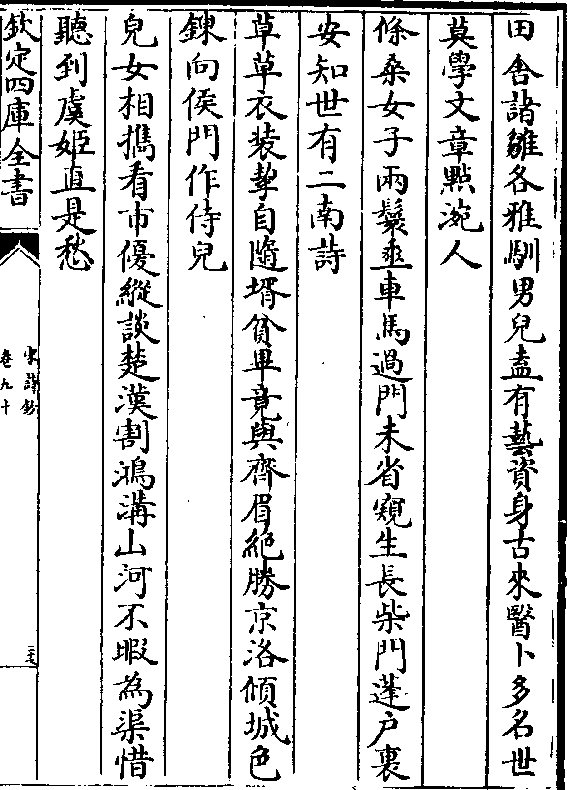 田舍諸雛各雅馴男兒盍有藝資身古來醫卜多名世
莫學文章點涴人
條桑女子兩鬟垂車馬過門未省窺生長柴門蓬户裏
安知世有二南詩
草草衣装挚自隨壻貧畢竟與齊眉絶勝京洛傾城色
鍊向侯門作侍兒
兒女相擕看市優縱談楚漢割鴻溝山河不暇為渠惜
聽到虞姬直是愁
欽定四庫全書
宋詩鈔
卷九十